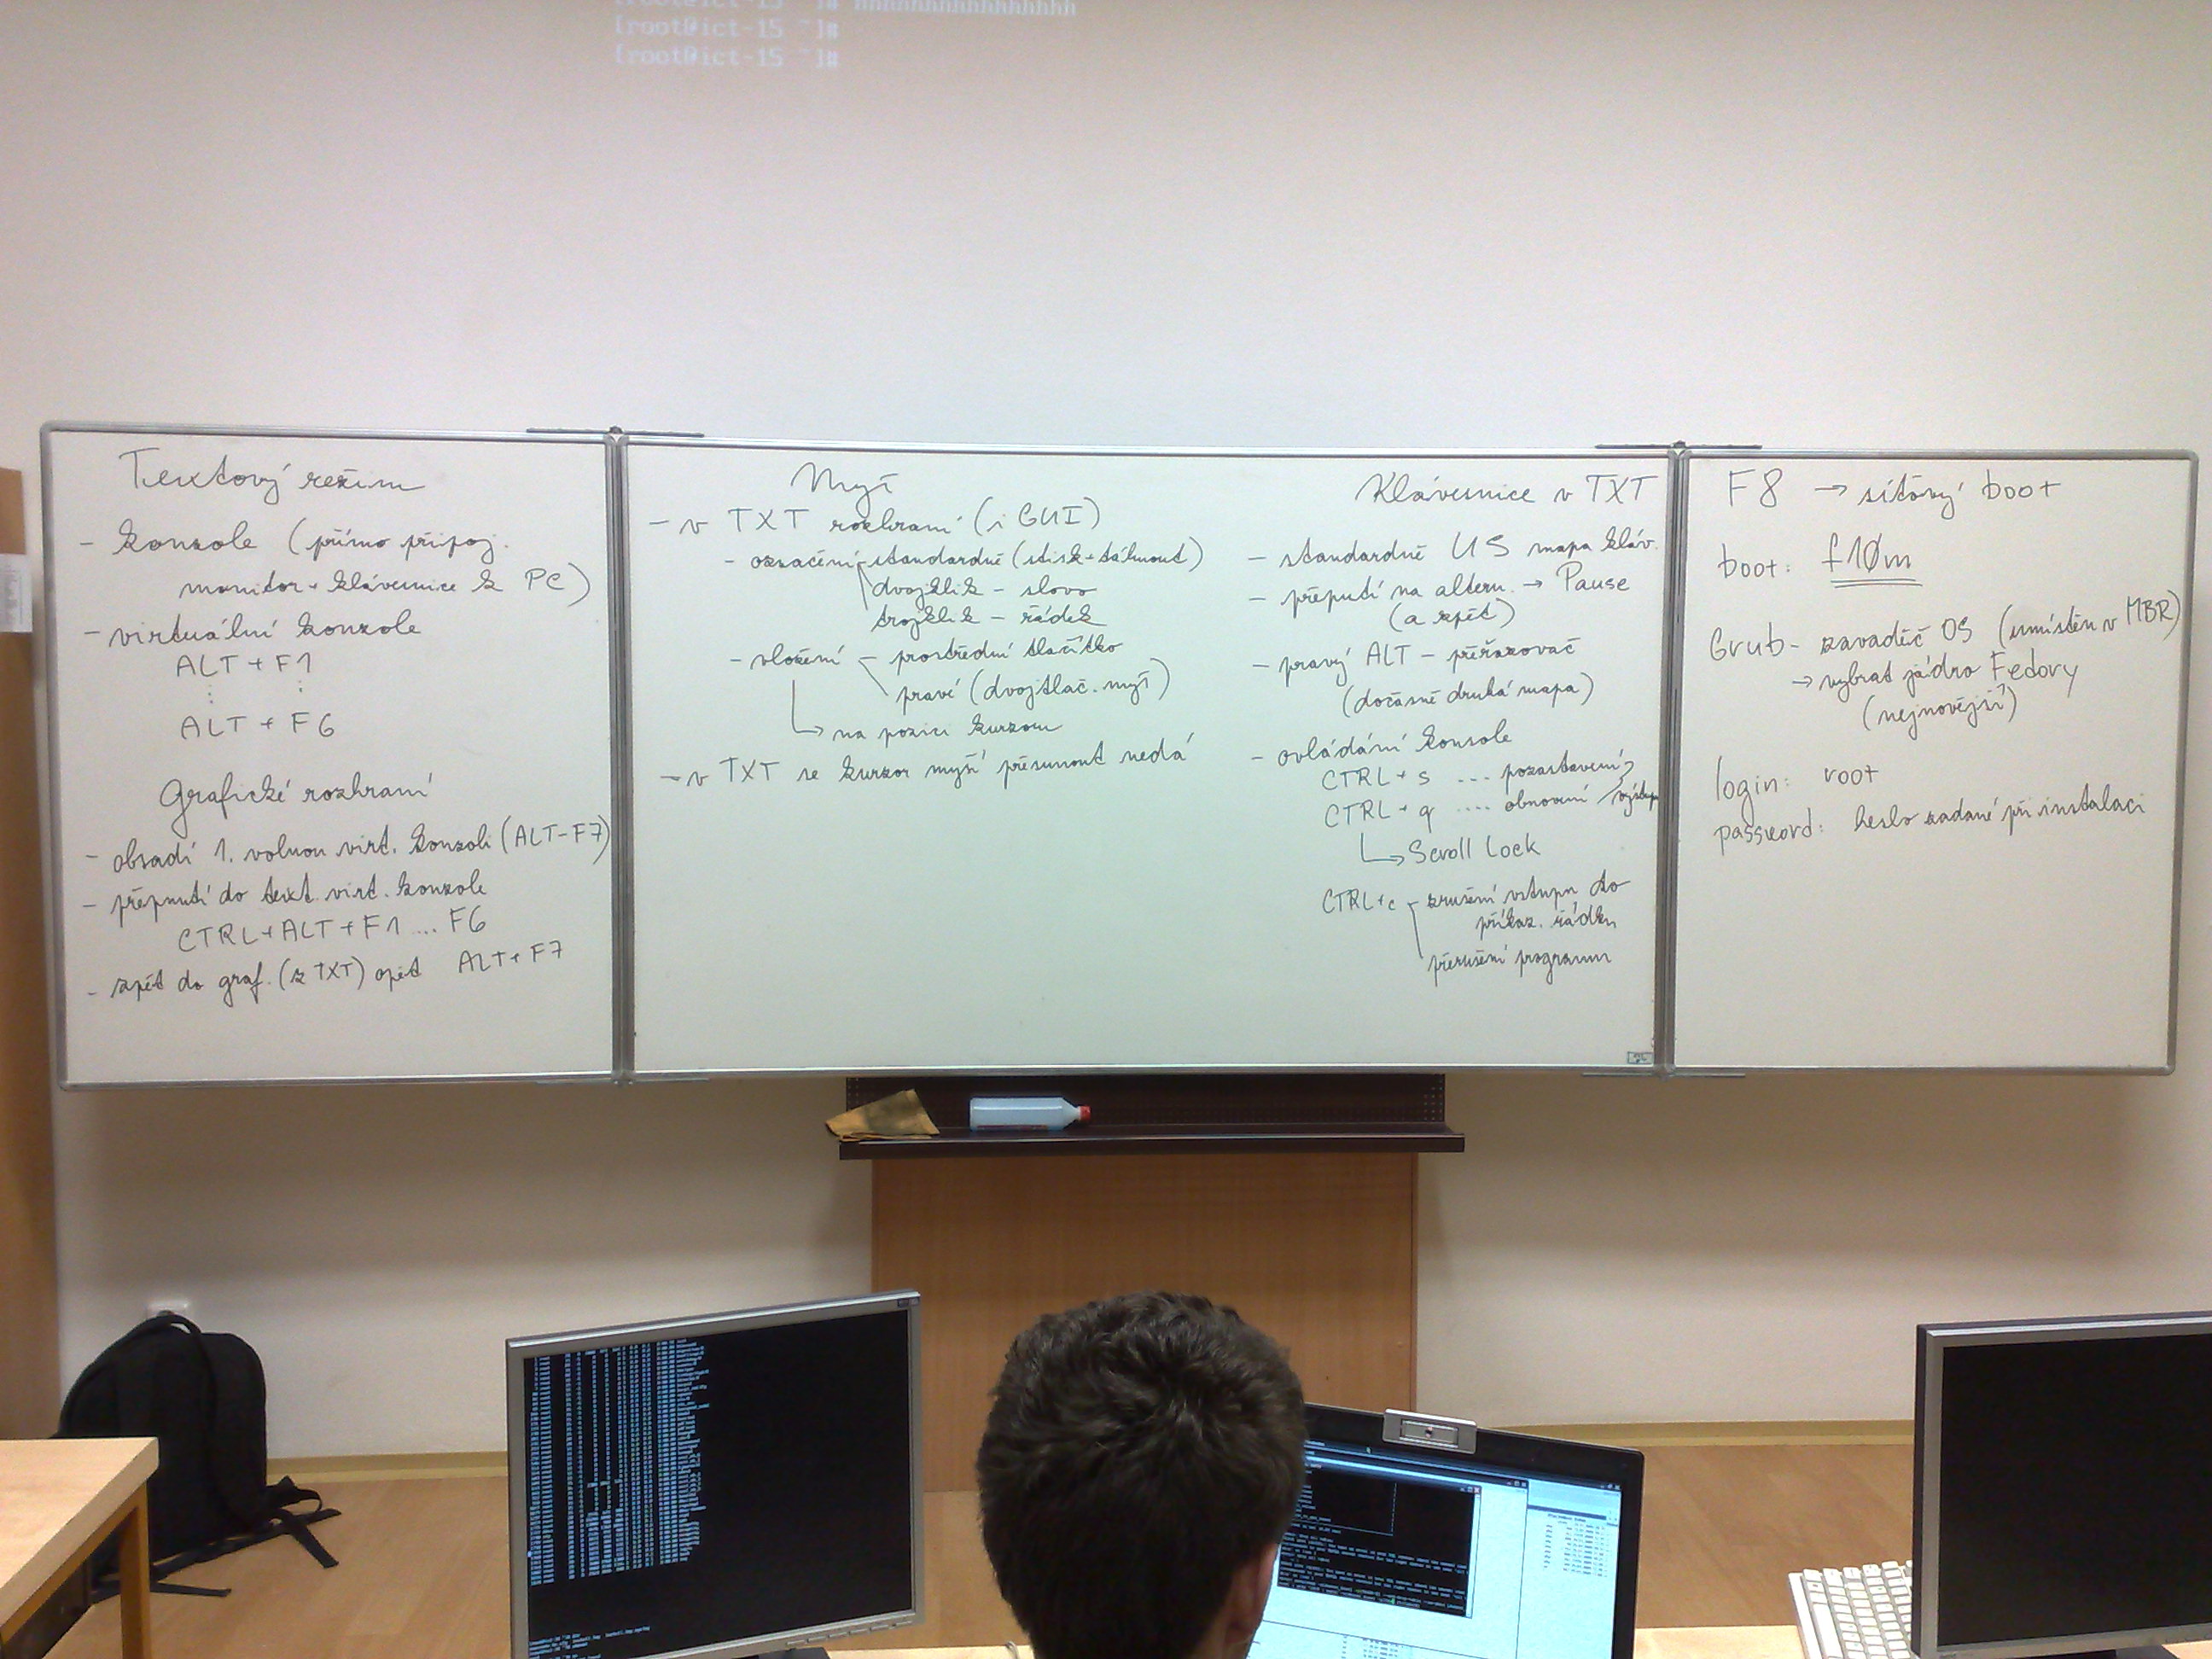 [root@ict-15 ~]# hhhhhhhhhhhhhhhhh
[root@ict-15 ~]#
[root@ict-15 ~]#
Textový režim
- konzole (přímo připoj.
monitor + klávesnice k PC)
- virtuální konzole
ALT + F1
⋮ ⋮
ALT + F6
Grafické rozhraní
- obsadí 1. volnou virt. konzoli (ALT-F7)
- přepnutí do text. virt. konzole
CTRL+ALT+F1 ... F6
- zpět do graf. (z TXT) opět ALT+F7
Myš
- v TXT rozhraní (i GUI)
- označení - standardně (stisk + táhnout)
dvojklik - slovo
trojklik - řádek
- vložení - prostřední tlačítko
pravé (dvojtlač. myš)
↳ na pozici kurzoru
- v TXT se kurzor myší přesunout nedá
Klávesnice v TXT
- standardně US mapa kláv.
- přepnutí na altern. → Pause
(a zpět)
- pravý ALT - přeřazovač
(dočasně druhá mapa)
- ovládání konzole
CTRL + s ... pozastavení
CTRL + q .... obnovení výstupu
↳ Scroll Lock
CTRL+c - zrušení vstupu do
příkaz. řádku
přerušení programu
F8 → síťový boot
boot: f10m
Grub - zavaděč OS (umístěn v MBR)
→ vybrat jádro Fedory
(nejnovější)
login: root
password: heslo zadané při instalaci